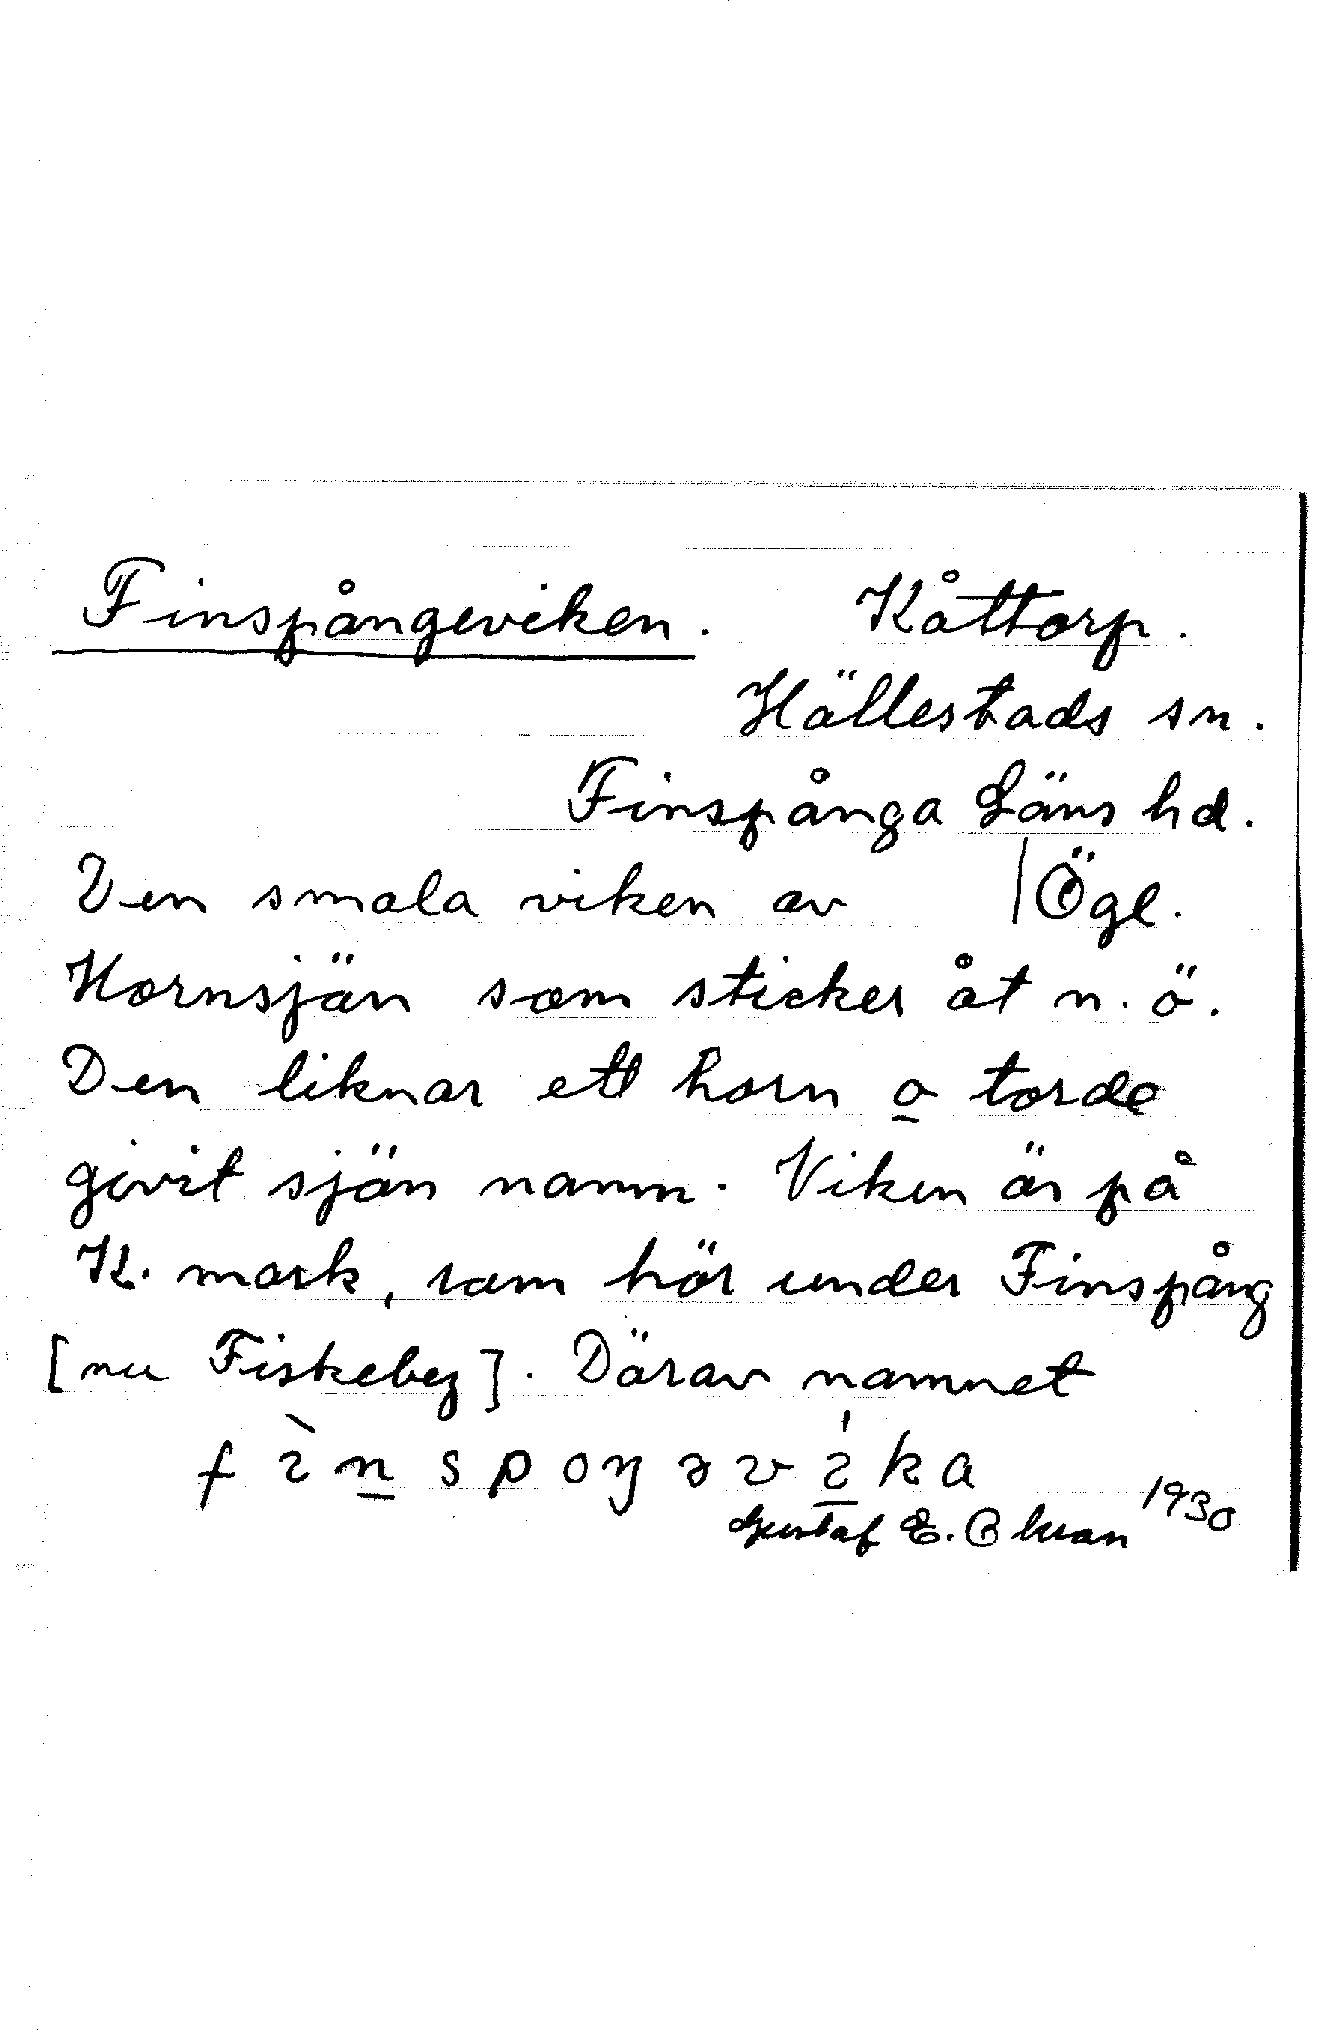 Finspångeviken. Kåttorp.
Hällestads sn.
Finspånga Läns hd.
Den smala viken av | Ögl.
Hornsjön som sticker åt n.ö.
Den liknar ett horn o torde
givit sjön namn. Viken är på
K. mark, som hör under Finspång
[nu Fiskeby]. Därav namnet
fìnspoŋəvíka
Gustaf E. Ohman 1930